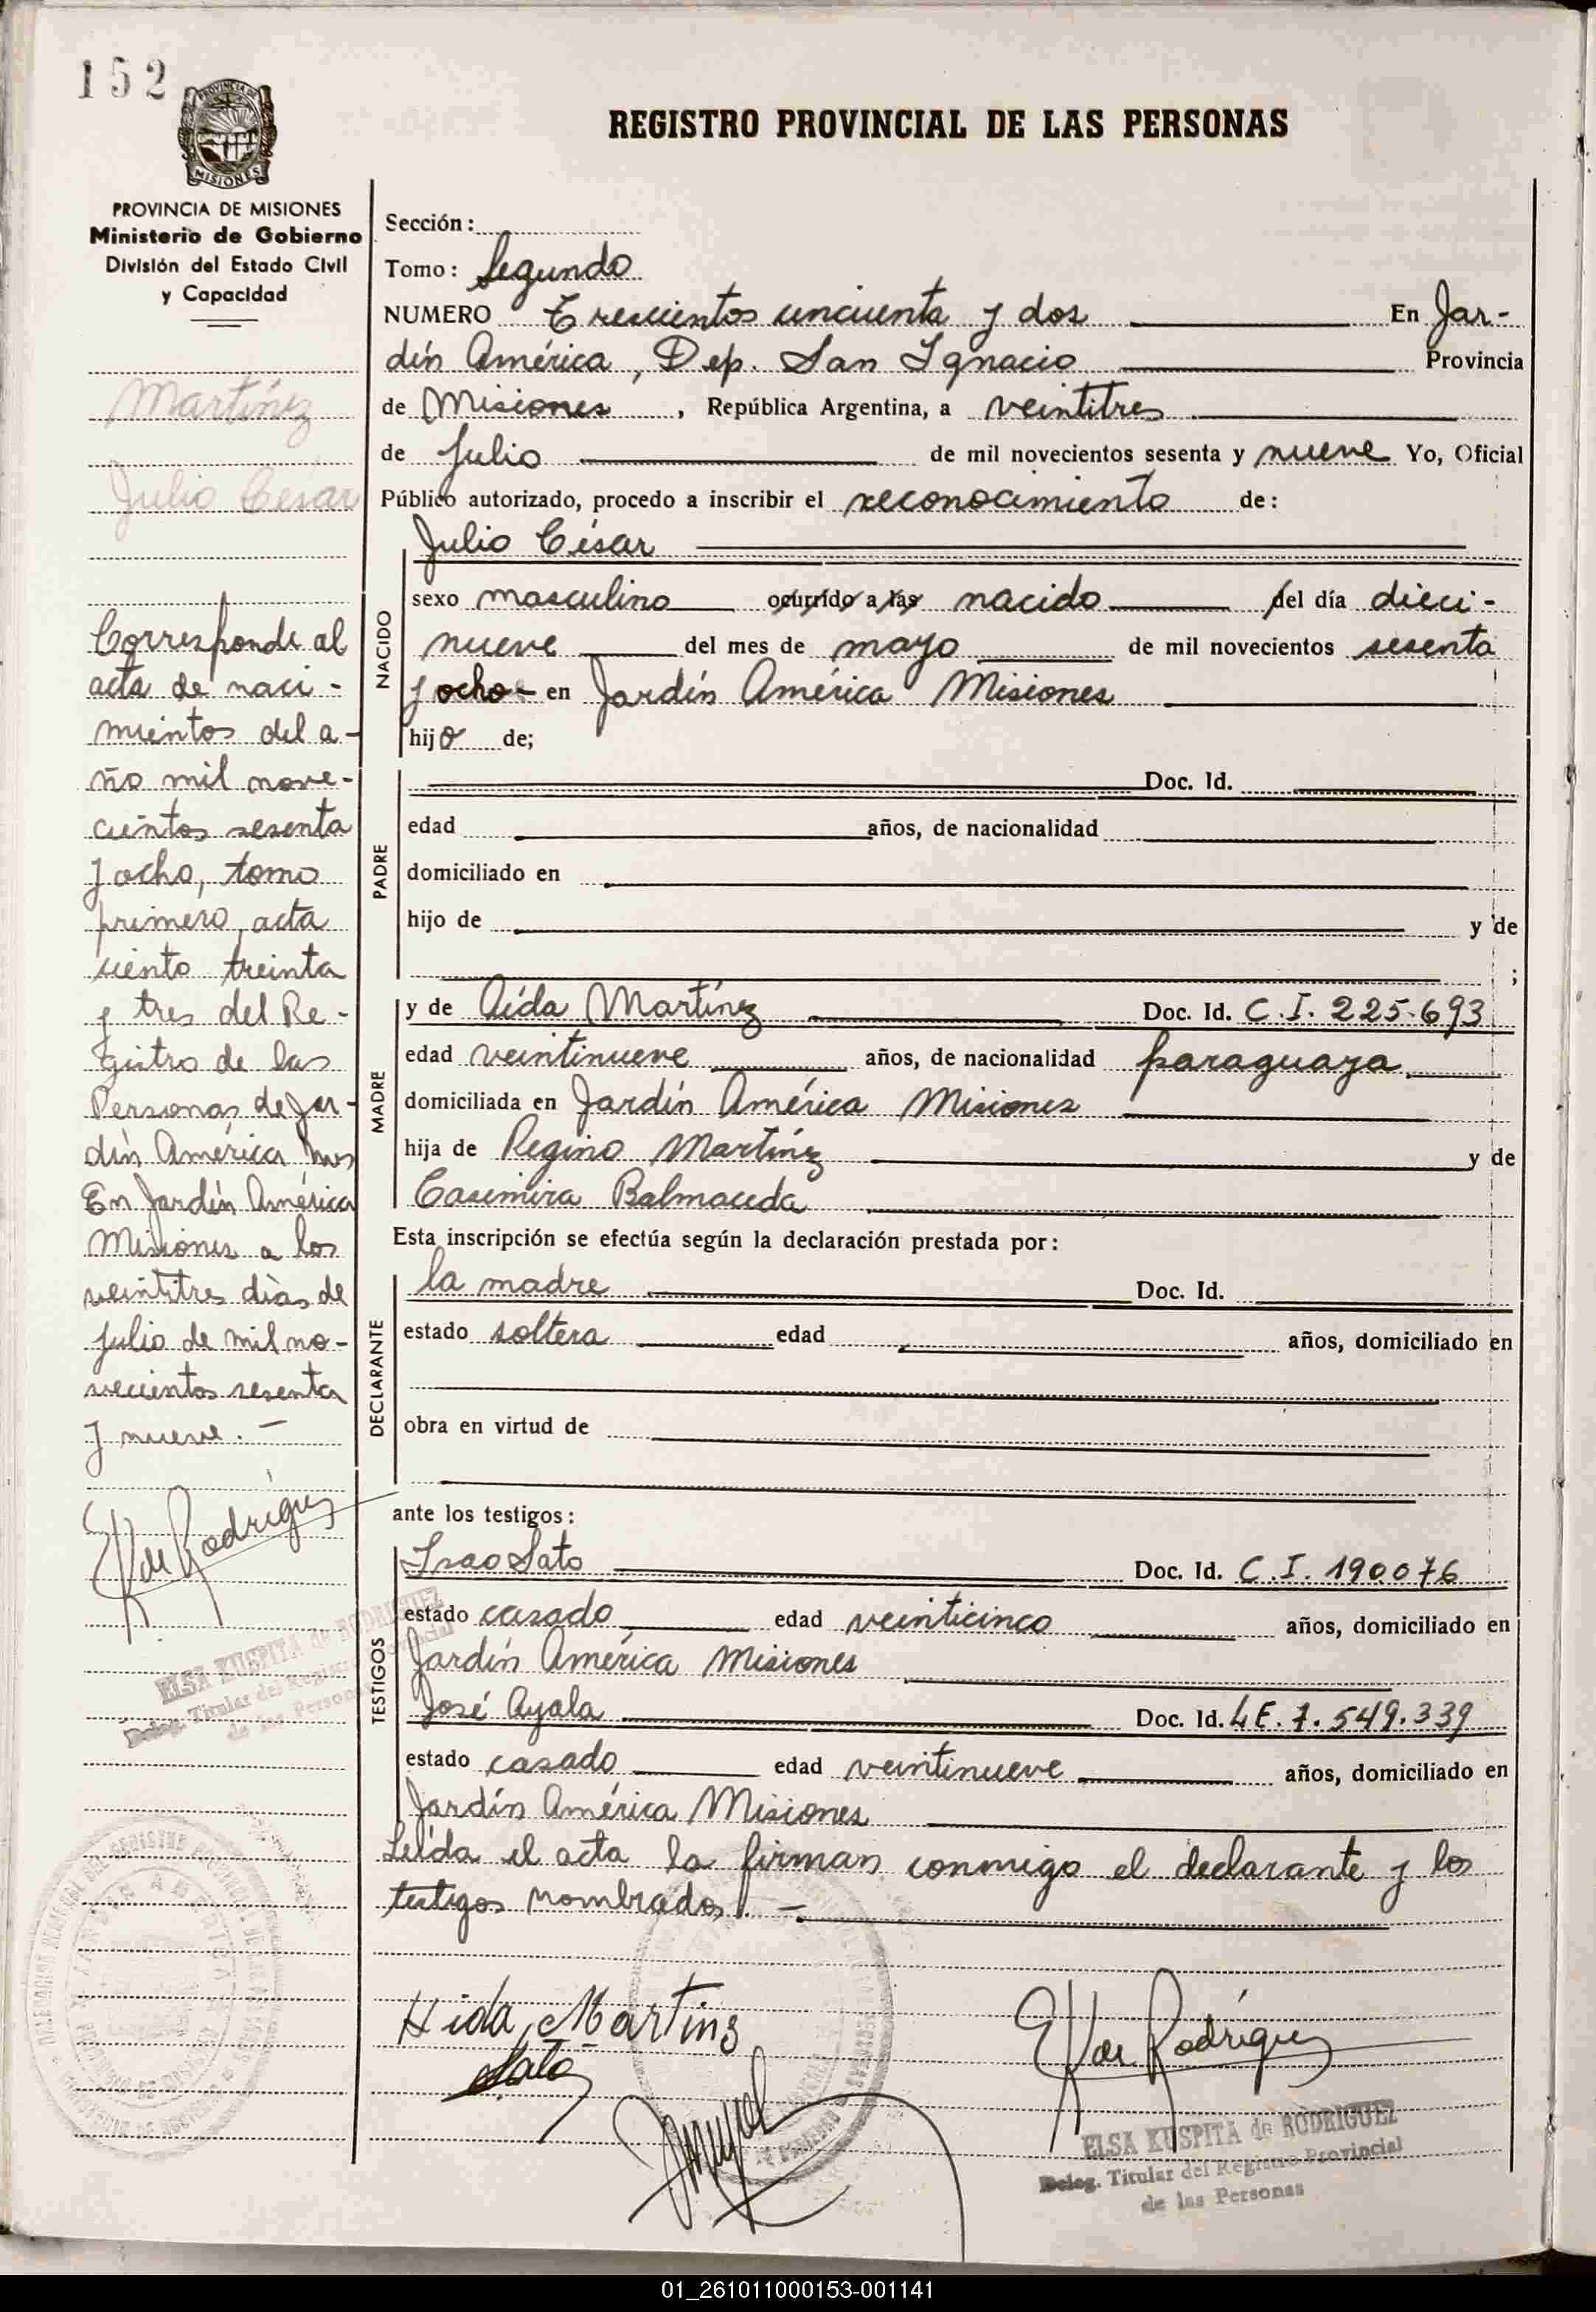 152
PROVINCIA DE
MISIONES
REGISTRO PROVINCIAL DE LAS PERSONAS
PROVINCIA DE MISIONES
Ministerio de Gobierno
División del Estado Civil
y Capacidad
Martínez
Julio César
Corresponde al
acta de naci-
mientos del a-
ño mil nove-
cientos sesenta
y ocho, tomo
primero, acta
ciento treinta
y tres del Re-
gistro de las
Personas de Jar-
dín América, Mnes
En Jardín América
Misiones a los
veintitres días de
julio de mil no-
vecientos sesenta
y nueve. —
EK de Rodríguez
ELSA KUSPITA de RODRIGUEZ
Deleg. Titular del Registro Provincial
de las Personas
Sección:
Tomo: Segundo
NUMERO Trescientos cincuenta y dos En Jar-
dín América, Dep. San Ignacio Provincia
de Misiones, República Argentina, a veintitres
de Julio de mil novecientos sesenta y nueve Yo, Oficial
Público autorizado, procedo a inscribir el reconocimiento de:
Julio César
NACIDO
sexo masculino ocurrido a las nacido del día dieci-
nueve del mes de mayo de mil novecientos sesenta
y ocho - en Jardín América Misiones
hijo de;
PADRE
Doc. Id.
edad años, de nacionalidad
domiciliado en
hijo de y de
;
MADRE
y de Aída Martínez Doc. Id. C.I. 225.693
edad veintinueve años, de nacionalidad paraguaya
domiciliada en Jardín América Misiones
hija de Regino Martínez y de
Casimira Balmaceda
Esta inscripción se efectúa según la declaración prestada por:
DECLARANTE
la madre Doc. Id.
estado soltera edad años, domiciliado en
obra en virtud de
ante los testigos:
TESTIGOS
Isao Sato Doc. Id. C.I. 190076
estado casado edad veinticinco años, domiciliado en
Jardín América Misiones
José Ayala Doc. Id. LE. 7.549.339
estado casado edad veintinueve años, domiciliado en
Jardín América Misiones
Leída el acta la firman conmigo el declarante y los
testigos nombrados. —
Aida Martinz
Sato
EK de Rodríguez
ELSA KUSPITA de RODRIGUEZ
Deleg. Titular del Registro Provincial
de las Personas
01_261011000153-001141